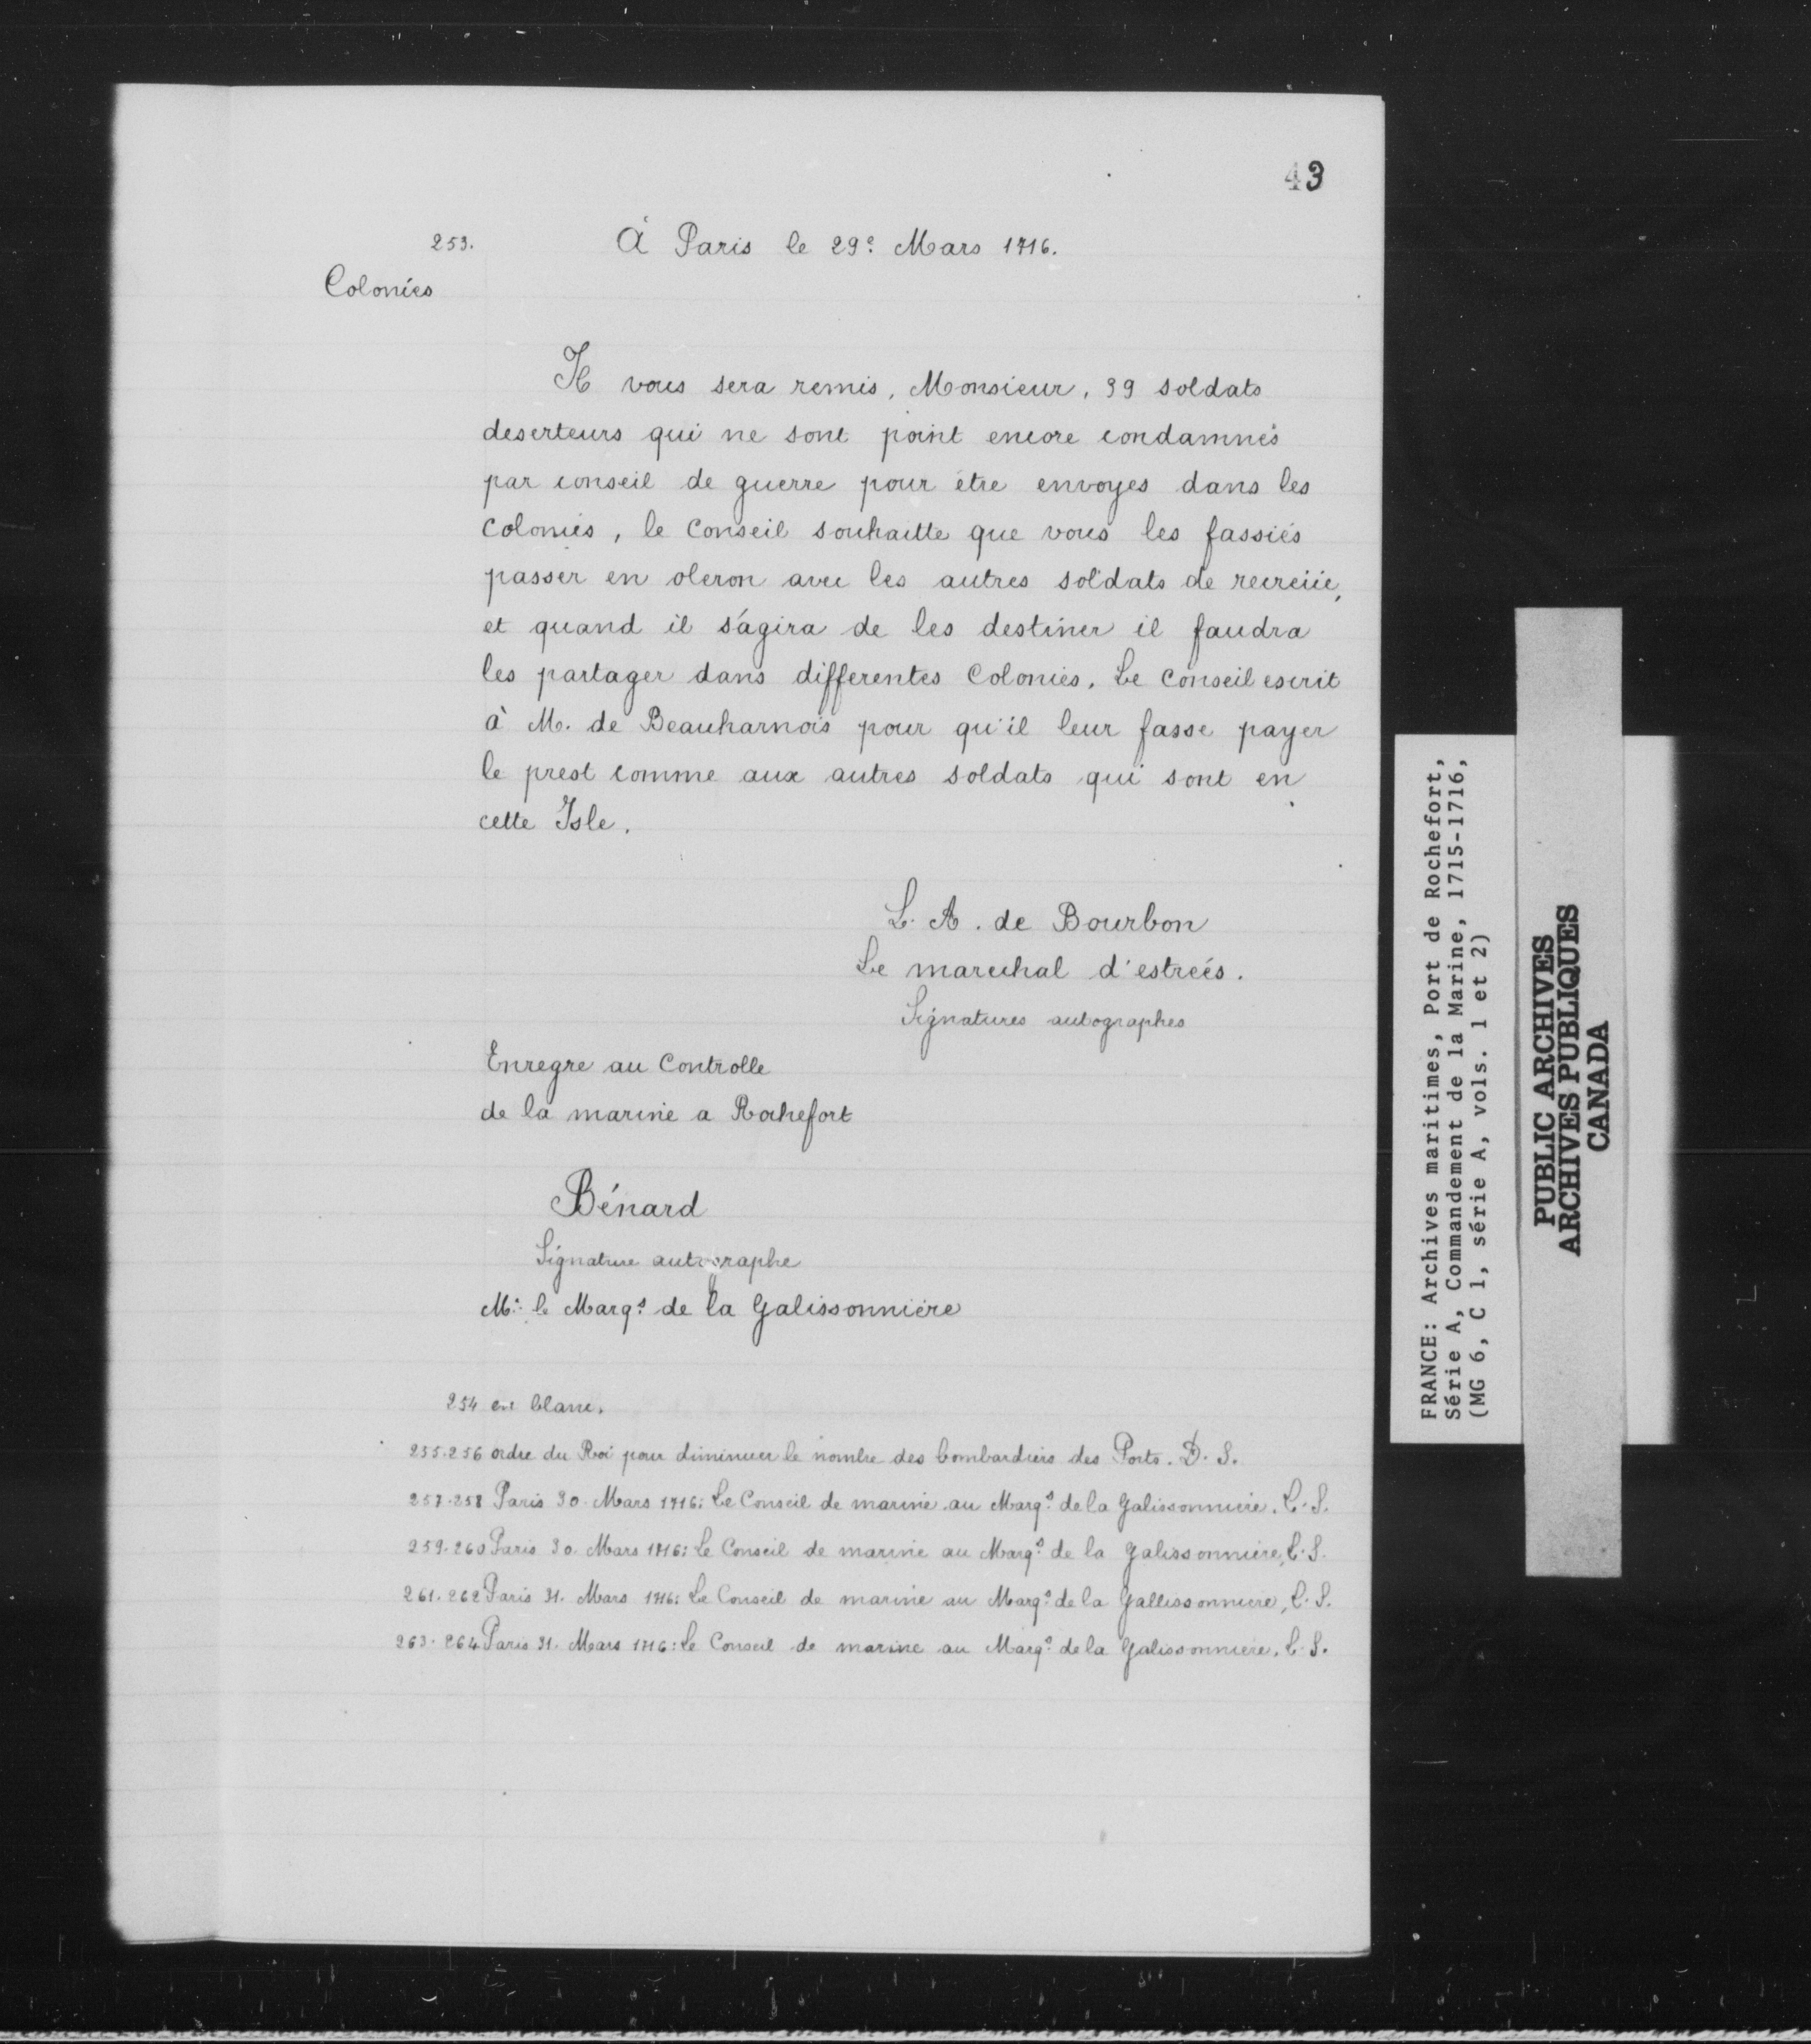 43
253.
À Paris le 29e Mars 1716.
Colonies
Il vous sera remis, Monsieur, 39 soldats
deserteurs qui ne sont point encore condamnés
par conseil de guerre pour être envoyes dans les
Colonies, le Conseil souhaitte que vous les fassiés
passer en oleron avec les autres soldats de recreüe,
et quand il s'agira de les destiner il faudra
les partager dans differentes Colonies. Le Conseil escrit
à M. de Beauharnois pour qu'il leur fasse payer
le prest comme aux autres soldats qui sont en
cette Isle.
L. A. de Bourbon
Le marechal d'estreés.
Signatures autographes
Enregre au Controlle
de la marine a Rochefort
Bénard
Signature autographe
Mr le Marqs de la Galissonnière
254 en blanc.
255.256 ordre du Roi pour diminuer le nombre des bombardiers des Ports. D. S.
257.258 Paris 30. Mars 1716: Le Conseil de marine au Marqs de la Galissonnière. L. S.
259.260 Paris 30. Mars 1716: Le Conseil de marine au Marqs de la Galissonnière, L. S.
261.262 Paris 31. Mars 1716: Le Conseil de marine au Marqs de la Gallissonnière, L. S.
263.264 Paris 31. Mars 1716: Le Conseil de marine au Marqs de la Galissonnière. L. S.
FRANCE: Archives maritimes, Port de Rochefort,
Série A, Commandement de la Marine, 1715-1716,
(MG 6, C 1, série A, vols. 1 et 2)
PUBLIC ARCHIVES
ARCHIVES PUBLIQUES
CANADA